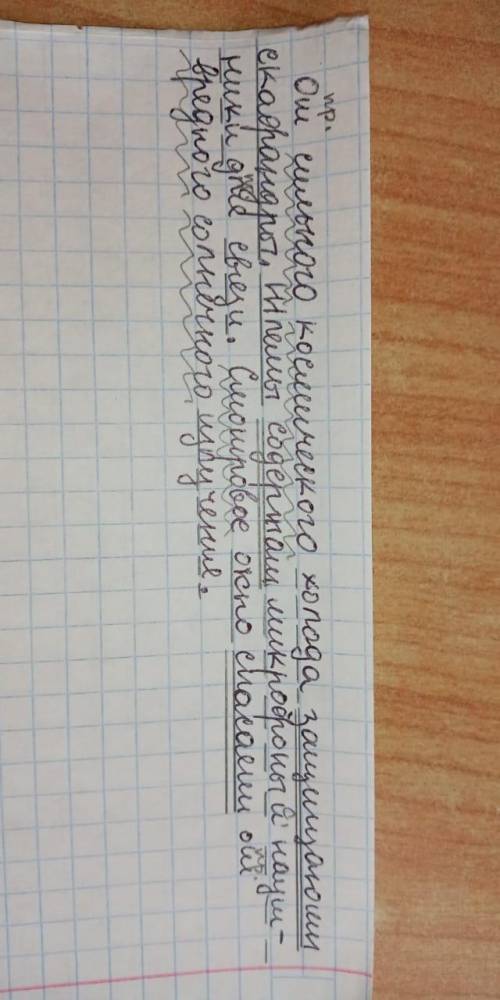 пр.
От сильного космического холода защищают
скафандры. Шлемы содержат микрофоны и науш-
ники для связи. Смотровое окно спасает от
пр.
вредного солнечного излучения.